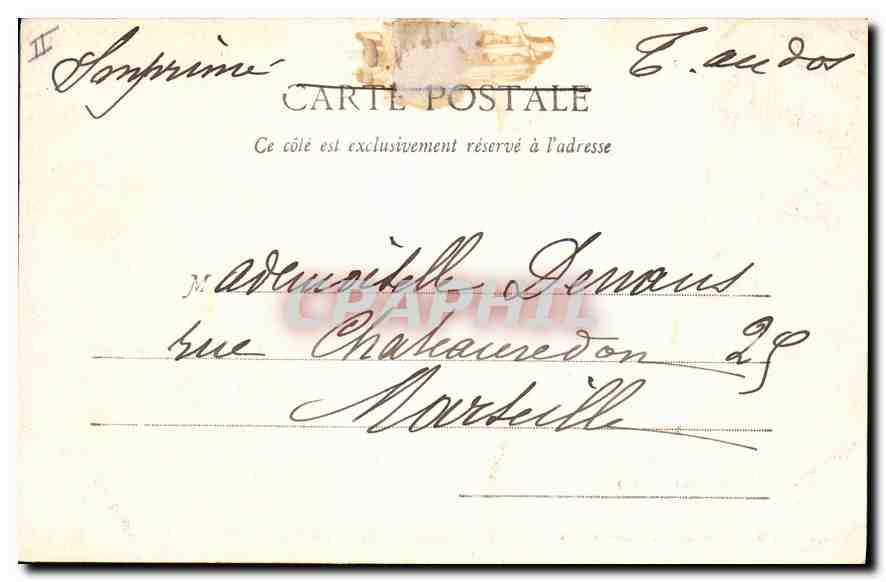 II
Imprimé T. au dos
CARTE POSTALE
Ce côté est exclusivement réservé à l'adresse
Mademoiselle Denans
rue Chateauredon 25
Marseille
CPAPHIL